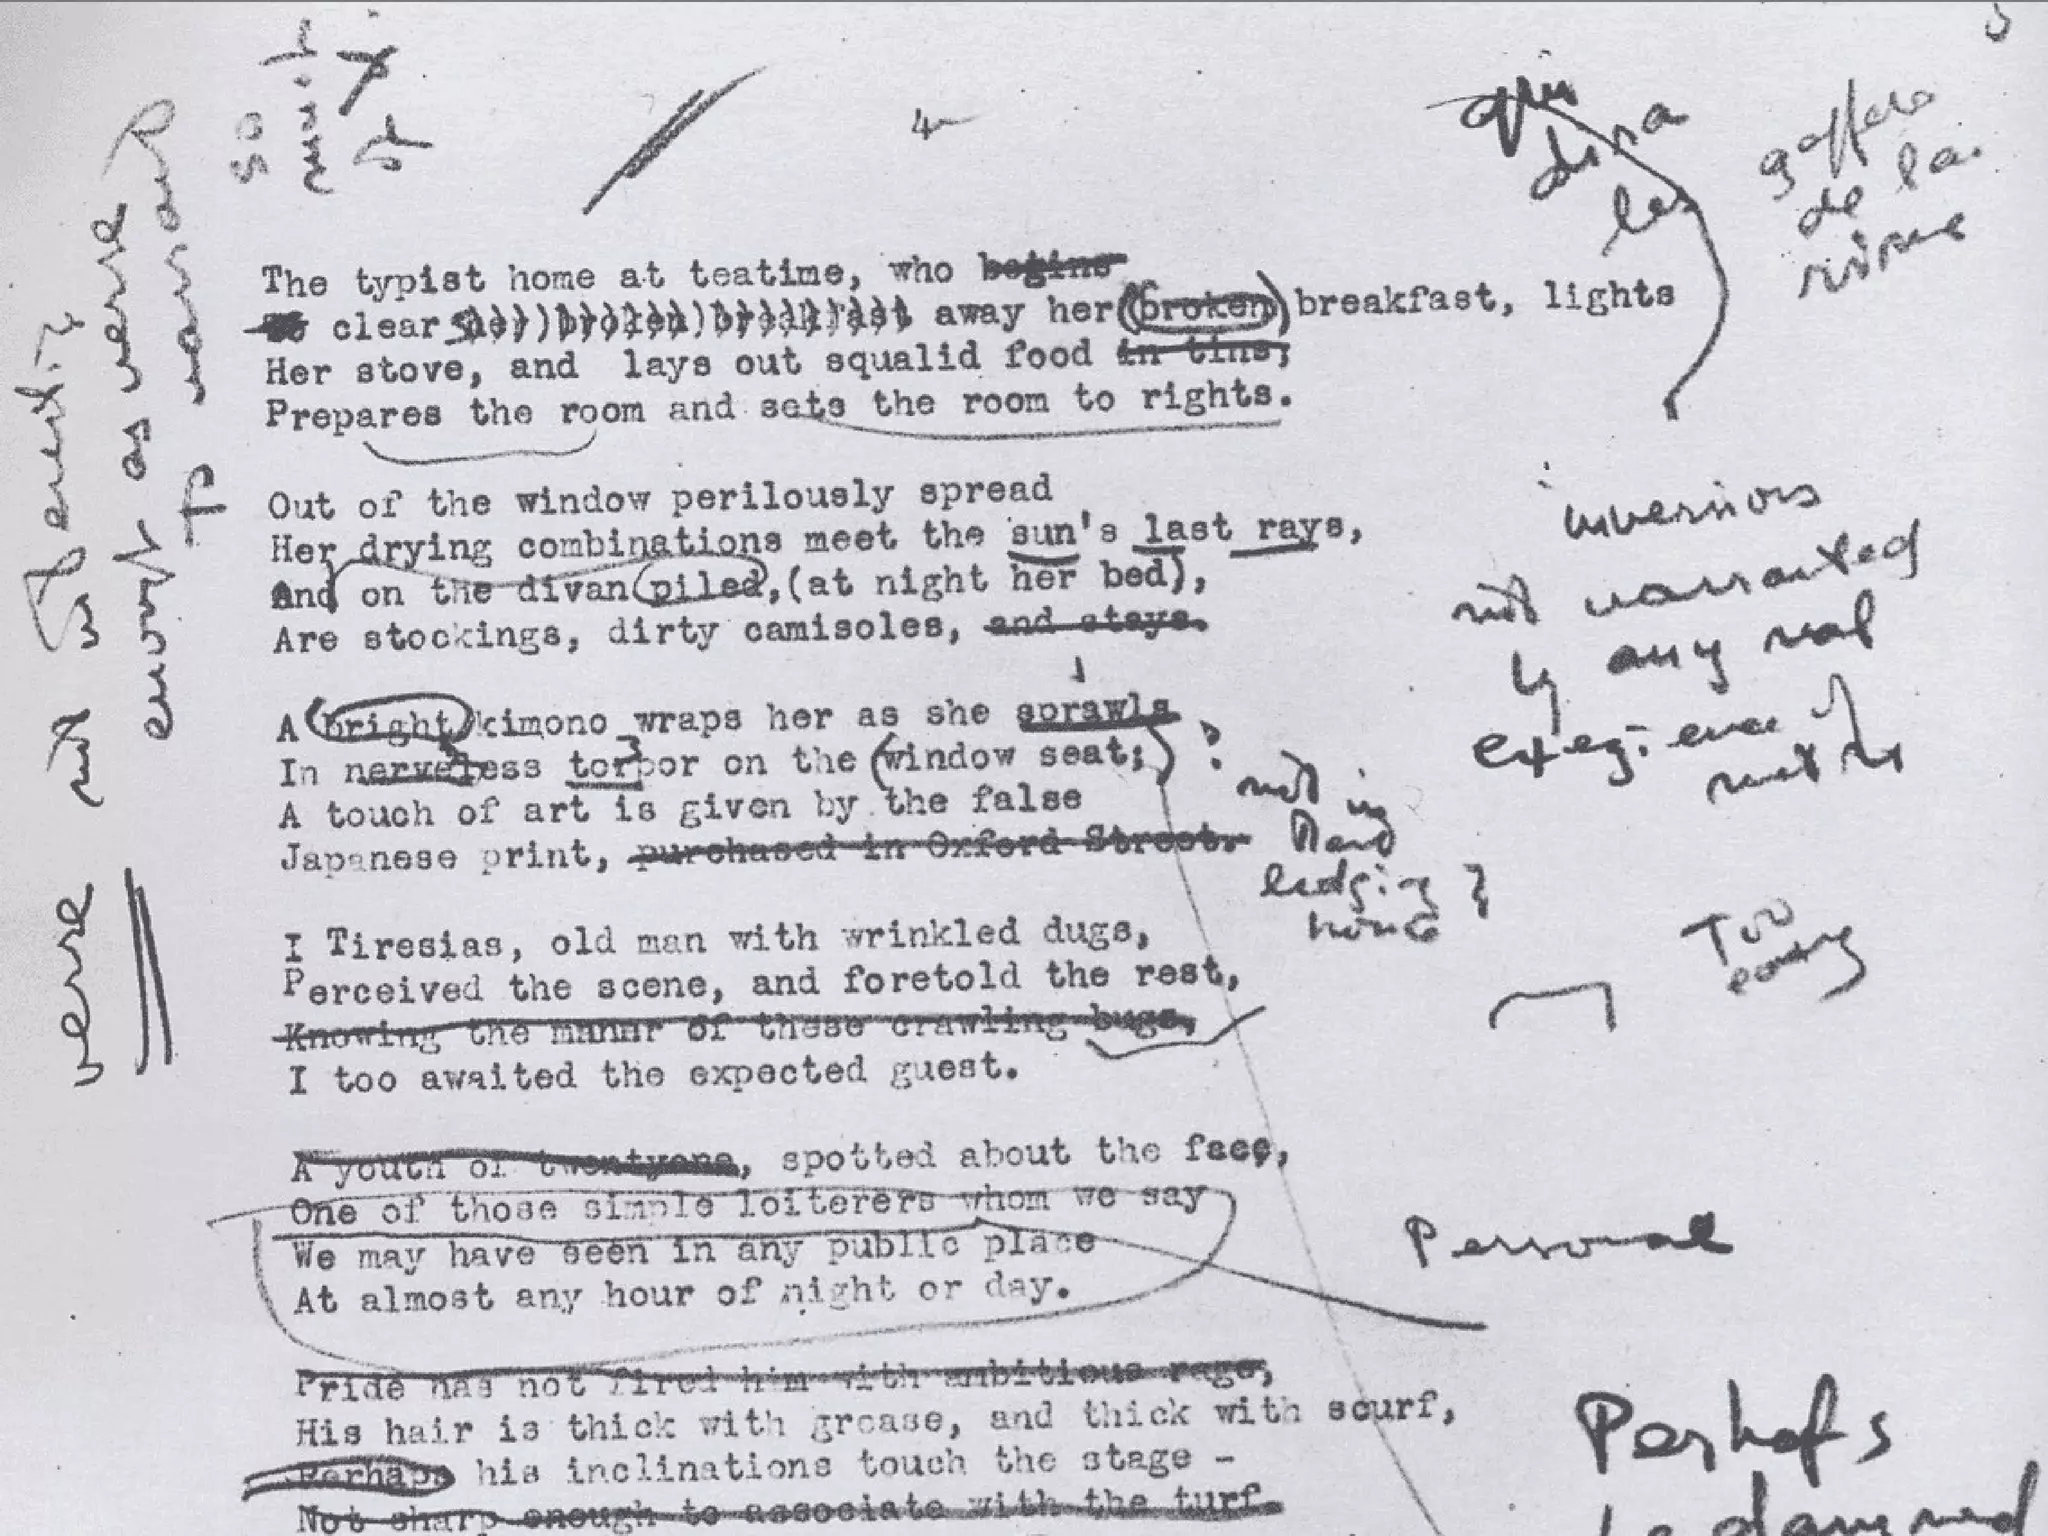 4
qui
dira
les
gaffers
de la
rime
The typist home at teatime, who begins
To clear her broken breakfast away her (broken) breakfast, lights
Her stove, and lays out squalid food in tins,
Prepares the room and sets the room to rights.
Out of the window perilously spread
Her drying combinations meet the sun's last rays,
And on the divan piled, (at night her bed),
Are stockings, dirty camisoles, and stays.
inversions
not warranted
by any real
exegience of
metre
A bright kimono wraps her as she sprawls
In nerveless torpor on the window seat;
A touch of art is given by the false
Japanese print, purchased in Oxford Street.
?
not in
lodging
house ?
I Tiresias, old man with wrinkled dugs,
Perceived the scene, and foretold the rest,
Knowing the manner of these crawling bugs,
I too awaited the expected guest.
Too
easy
A youth of twentyone, spotted about the face,
One of those simple loiterers whom we say
We may have seen in any public place
At almost any hour of night or day.
Personal
Pride has not fired him with ambitious rage,
His hair is thick with grease, and thick with scurf,
Perhaps his inclinations touch the stage -
Not sharp enough to associate with the turf.
Perhaps
be damned
verse not interesting
enough as verse
to warrant
so
much
of it